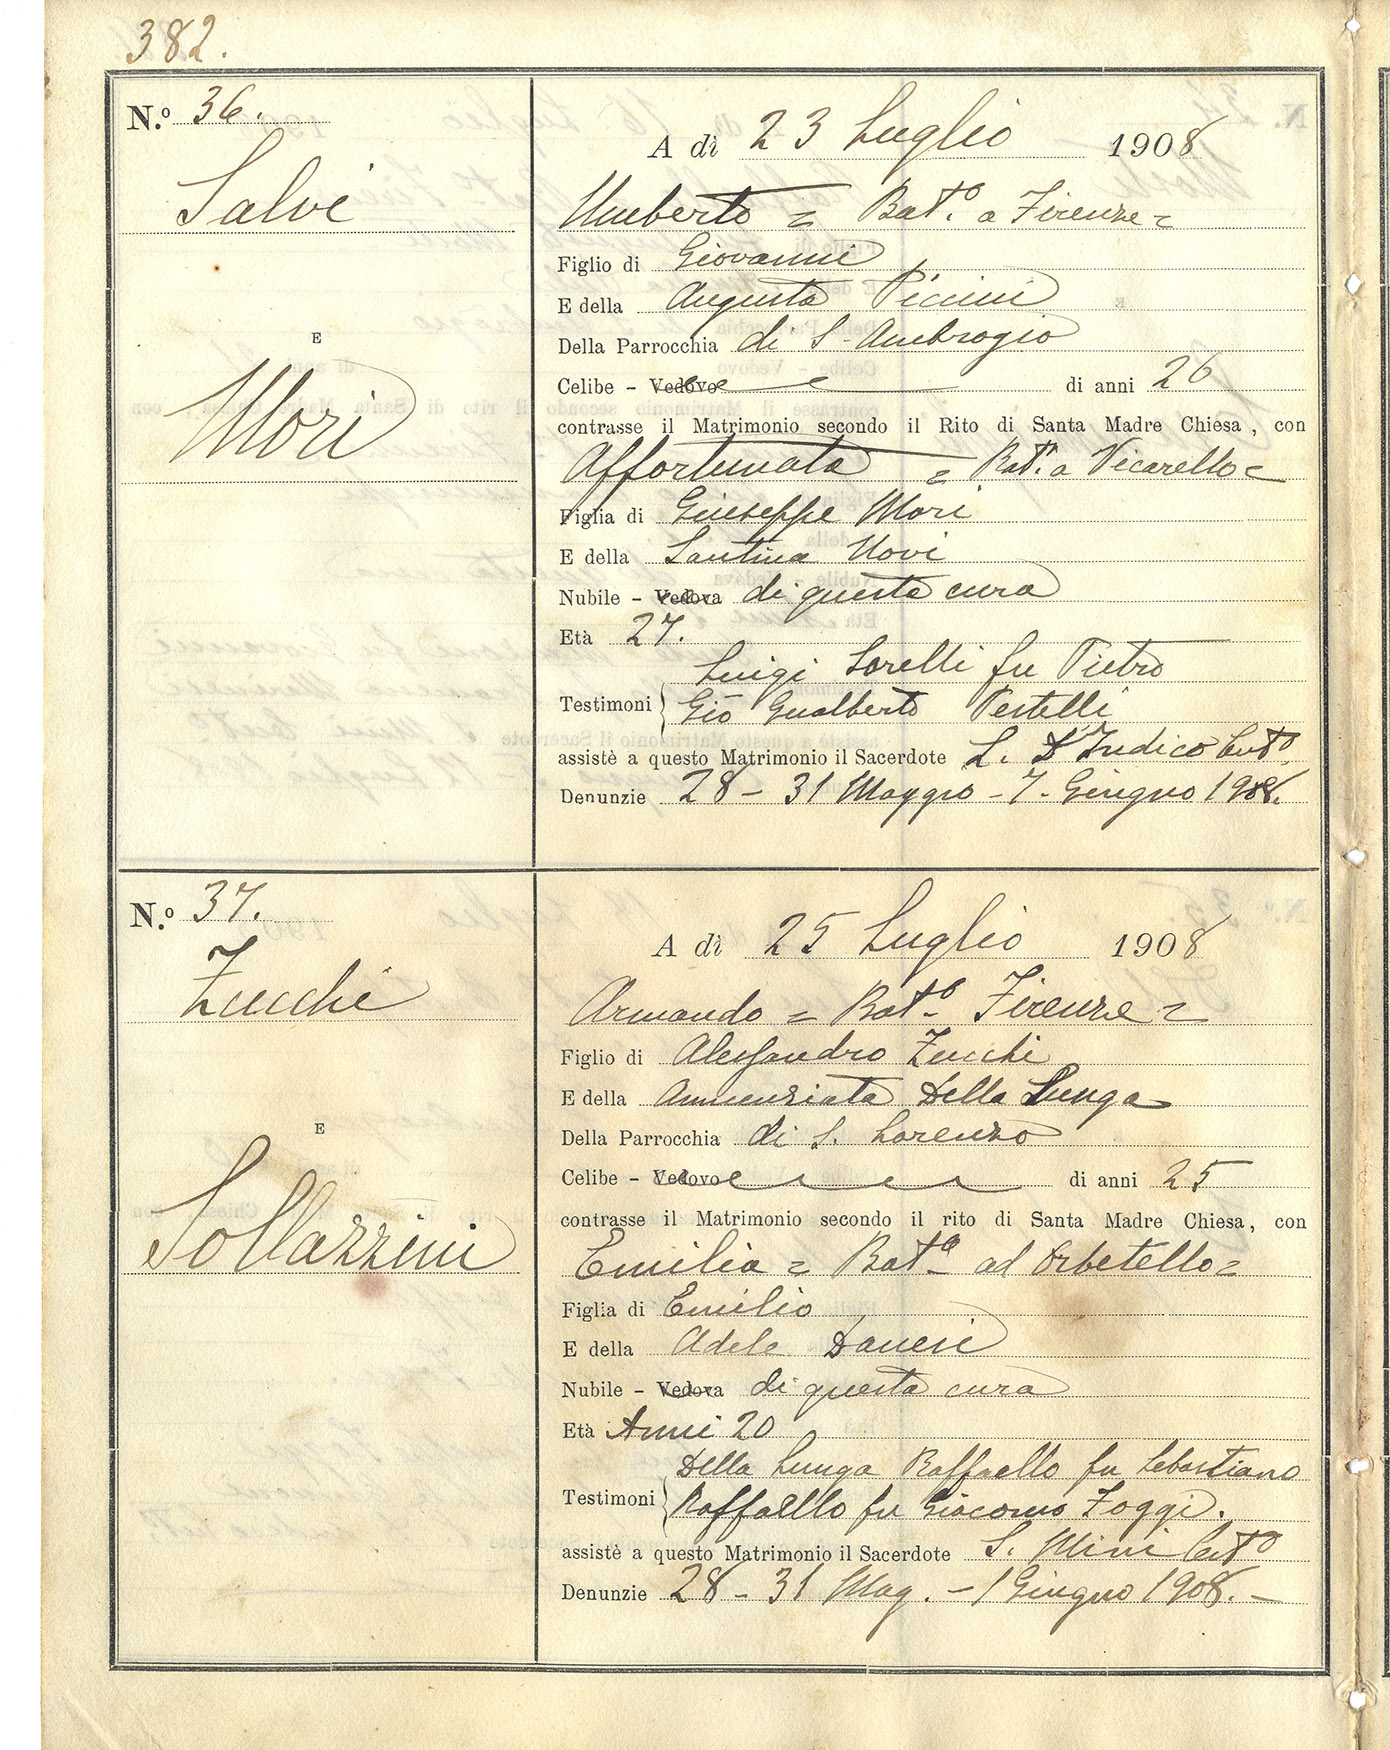 382.
N.º 36.
Salvi
E
Mori
A dì 23 Luglio 1908
Umberto = Bat.º a Firenze =
Figlio di Giovanni
E della Augusta Piccini
Della Parrocchia di S. Ambrogio
Celibe - Vedovo di anni 26
contrasse il Matrimonio secondo il Rito di Santa Madre Chiesa, con
Affortunata = Bat.ª a Vicarello =
Figlia di Giuseppe Mori
E della Santina Novi
Nubile - Vedova di questa cura
Età 27.
Luigi Sorelli fu Pietro
Testimoni Gio Gualberto Pestelli
assistè a questo Matrimonio il Sacerdote L. D'Indico Curº
Denunzie 28 - 31 Maggio - 7 - Giugno 1908.
N.º 37.
Zucchi
E
Sollazzini
A dì 25 Luglio 1908
Armando = Batº - Firenze =
Figlio di Alessandro Zucchi
E della Annunziata Della Lunga
Della Parrocchia di S. Lorenzo
Celibe - Vedovo di anni 25
contrasse il Matrimonio secondo il rito di Santa Madre Chiesa, con
Emilia = Batª - ad Orbetello =
Figlia di Emilio
E della Adele Daneri
Nubile - Vedova di questa cura
Età Anni 20
Della Lunga Raffaello fu Sebastiano
Testimoni Raffaello fu Giacomo Zoggi.
assistè a questo Matrimonio il Sacerdote S. Mini Curº
Denunzie 28 - 31 Mag. - 1 Giugno 1908. -